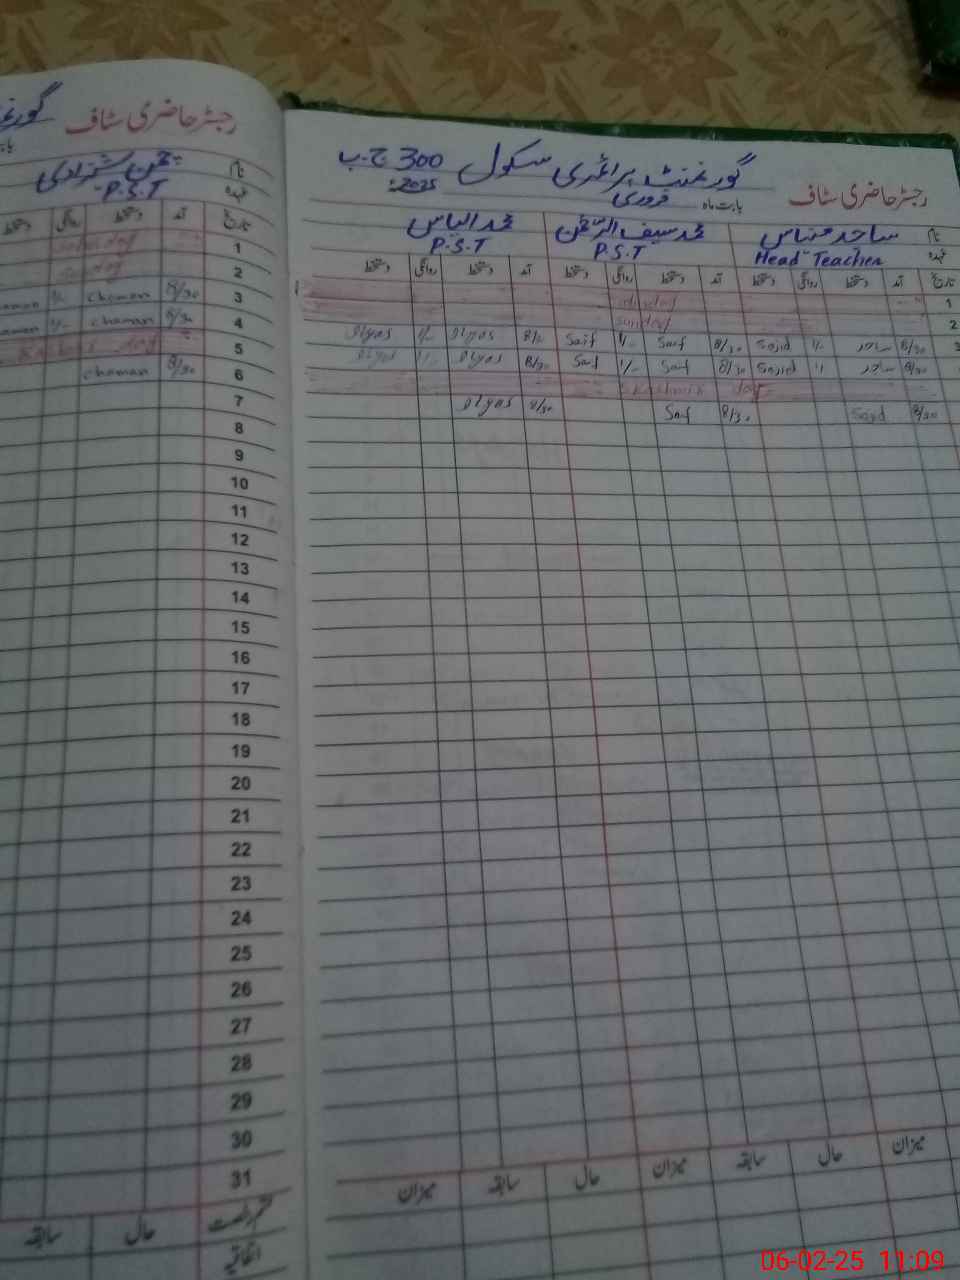 رجسٹر حاضری سٹاف
گورنمنٹ پرائمری سکول 300 ج.ب
بابت ماہ فروری 2025
نام ساجد محمد سیف الرحمن محمد الیاس
عہدہ Head Teacher P.S.T P.S.T
تاریخ آمد دستخط روانگی دستخط آمد دستخط روانگی دستخط آمد دستخط روانگی دستخط
1
2 Sunday
8/30 ساجد 1/- Sajid 8/30 Saif 1/- Saif 8/30 Ilyas 1/- Ilyas
8/30 ساجد 1/- Sajid 8/30 Saif 1/- Saif 8/30 Ilyas 1/- Ilyas
Kashmir day
8/30 Sajid 8/30 Saif 8/30 Ilyas
میزان حال سابقہ میزان حال سابقہ میزان
رجسٹر حاضری سٹاف
نام شہزادی
عہدہ P.S.T
تاریخ آمد دستخط روانگی دستخط
1
2
3 8/30 chaman 1/-
4 8/30 chaman 1/-
5 Kashmir day
6 8/30 chaman
7
8
9
10
11
12
13
14
15
16
17
18
19
20
21
22
23
24
25
26
27
28
29
30
31
قسم رخصت حال سابقہ
اتفاقیہ
06-02-25 11:09